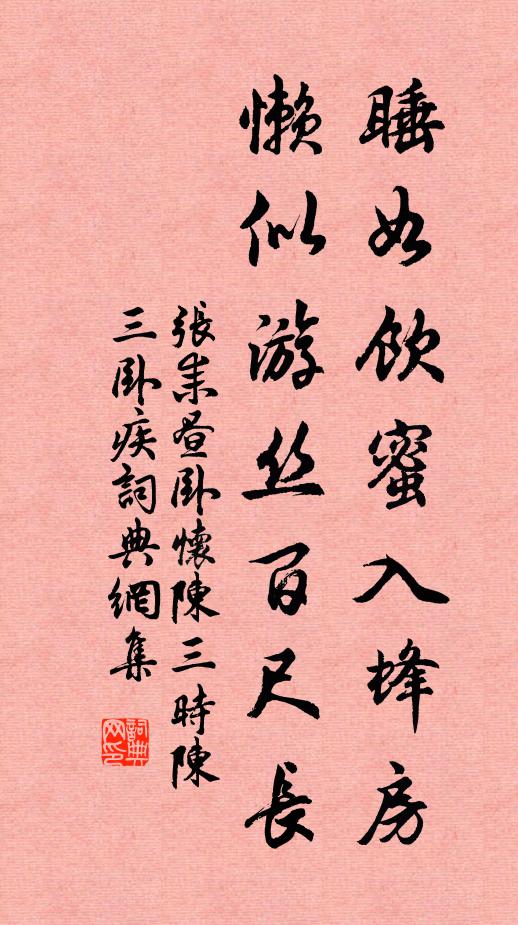 睡如饮蜜入蜂房
懒似游丝百尺長
張耒昼卧懷陳三時陳
三卧疾詞典網集
詞典
网印